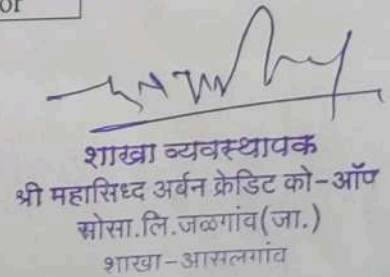 or
शाखा व्यवस्थापक
श्री महासिध्द अर्बन क्रेडिट को-ऑप
सोसा.लि.जळगांव(जा.)
शाखा-आसलगांव